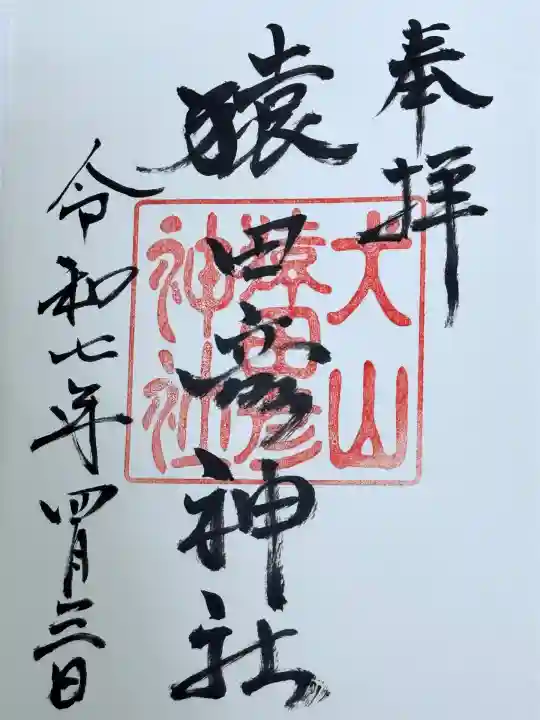 奉拝
犬山
猿田彦
神社
猿田彦神社
令和七年四月三日